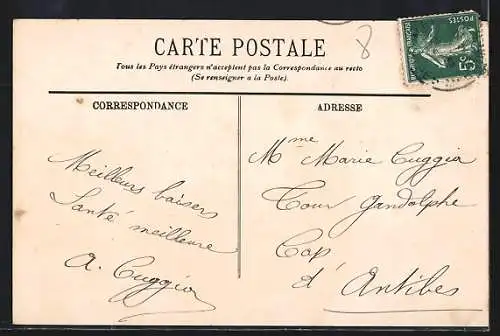 CARTE POSTALE
Tous les Pays étrangers n'acceptent pas la Correspondance au recto
(Se renseigner a la Poste).
CORRESPONDANCE
Meilleurs baisers
Santé meilleure
A. Cuggia
ADRESSE
Mme Marie Cuggia
Tour Gandolphe
Cap
d'Antibes
8
POSTES
5c